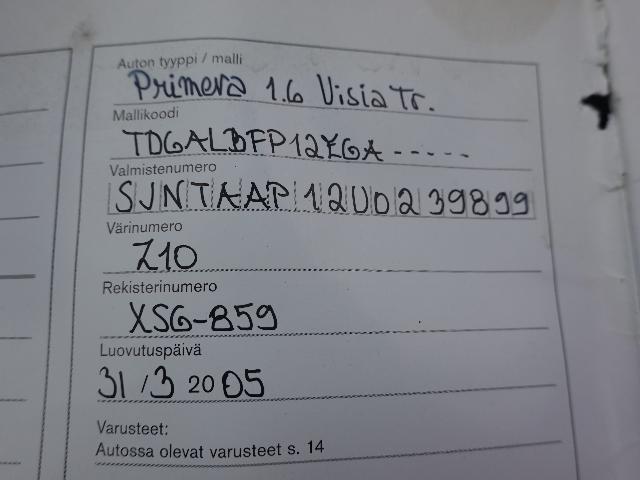 Auton tyyppi / malli
Primera 1.6 Visia Tr.
Mallikoodi
TDGALBFP12ZGA-----
Valmistenumero
SJNTAAP12U0239899
Värinumero
Z10
Rekisterinumero
XSG-859
Luovutuspäivä
31/3 2005
Varusteet:
Autossa olevat varusteet s. 14